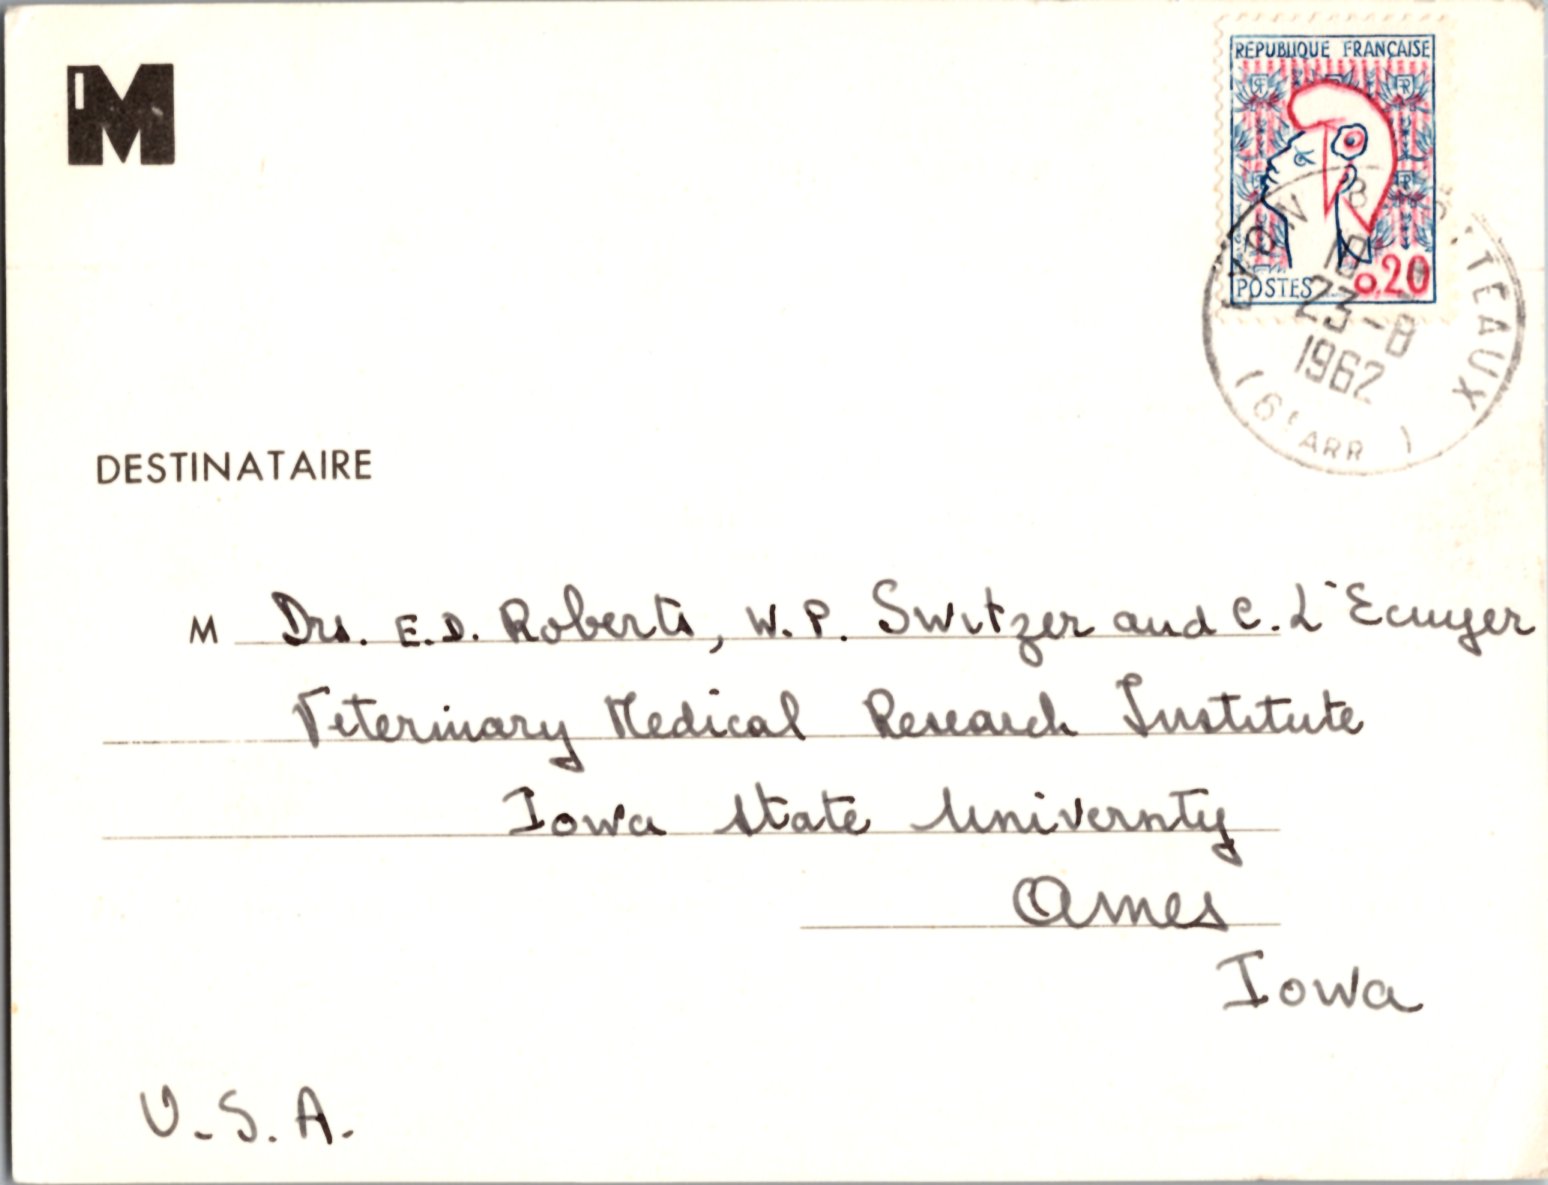 IM
RÉPUBLIQUE FRANÇAISE
POSTES 0,20
LYON B TTEAUX
18
23-8
1962
(6E ARR)
DESTINATAIRE
M Drs. E.D. Roberts, W.P. Switzer and C. L'Ecuyer
Veterinary Medical Research Institute
Iowa State University
Ames
Iowa
U.S.A.